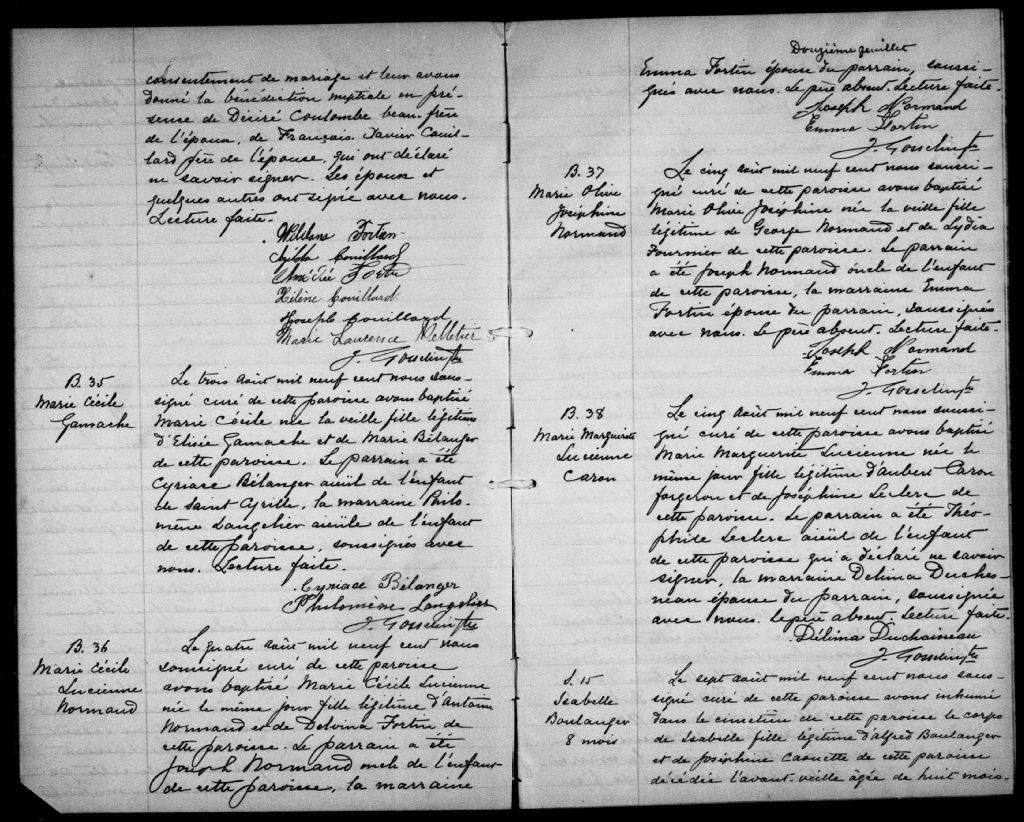 consentement de mariage et leur avons
donné la bénédiction nuptiale en pré-
sence de Désiré Coulombe beau-frère
de l'époux, de François Xavier Couil-
lard père de l'épouse, qui ont déclaré
ne savoir signer. Les époux et
quelques autres ont signé avec nous.
Lecture faite.
Fortin
Couillard
Amédée Fortin
Hélène Couillard
Joseph Couillard
Marie Laurence Pelletier
J. Gosselin Ptre
B. 35
Marie Cécile
Gamache
Le trois Août mil neuf cent nous sous-
signé curé de cette paroisse avons baptisé
Marie Cécile née la veille fille légitime
d'Elisée Gamache et de Marie Bélanger
de cette paroisse. Le parrain a été
Cyriace Bélanger aieul de l'enfant
de Saint Cyrille, la marraine Philo-
mène Langelier aieule de l'enfant
de cette paroisse, soussignés avec
nous. Lecture faite.
Cyriace Bélanger
Philomène Langelier
J. Gosselin Ptre
B. 36
Marie Cécile
Lucienne
Normand
Le quatre Août mil neuf cent nous
soussigné curé de cette paroisse
avons baptisé Marie Cécile Lucienne
née le même jour fille légitime d'Antoine
Normand et de Delvina Fortin de
cette paroisse. Le parrain a été
Joseph Normand oncle de l'enfant
de cette paroisse, la marraine
Douzième feuillet
Emma Fortin épouse du parrain, soussi-
gnés avec nous. Le père absent. Lecture faite.
Joseph Normand
Emma Fortin
J. Gosselin Ptre
B. 37
Marie Olive
Joséphine
Normand
Le cinq Août mil neuf cent nous soussi-
gné curé de cette paroisse avons baptisé
Marie Olive Joséphine née la veille fille
légitime de George Normand et de Lydia
Fournier de cette paroisse. Le parrain
a été Joseph Normand oncle de l'enfant
de cette paroisse, la marraine Emma
Fortin épouse du parrain, soussignés
avec nous. Le père absent. Lecture faite.
Joseph Normand
Emma Fortin
J. Gosselin Ptre
B. 38
Marie Marguerite
Lucienne
Caron
Le cinq Août mil neuf cent nous soussi-
gné curé de cette paroisse avons baptisé
Marie Marguerite Lucienne née le
même jour fille légitime d'Aubert Caron
forgeron et de Joséphine Leclerc de
cette paroisse. Le parrain a été Théo-
phile Leclerc aieül de l'enfant
de cette paroisse qui a déclaré ne savoir
signer, la marraine Délina Duches-
neau épouse du parrain, soussignée
avec nous. Le père absent. Lecture faite.
Délina Duchaineau
J. Gosselin Ptre
S. 15
Isabelle
Boulanger
8 mois
Le sept août mil neuf cent nous sous-
signé curé de cette paroisse avons inhumé
dans le cimetière de cette paroisse le corps
de Isabelle fille légitime d'Alfred Boulanger
et de Joséphine Caouette de cette paroisse
décédée l'avant-veille âgée de huit mois.